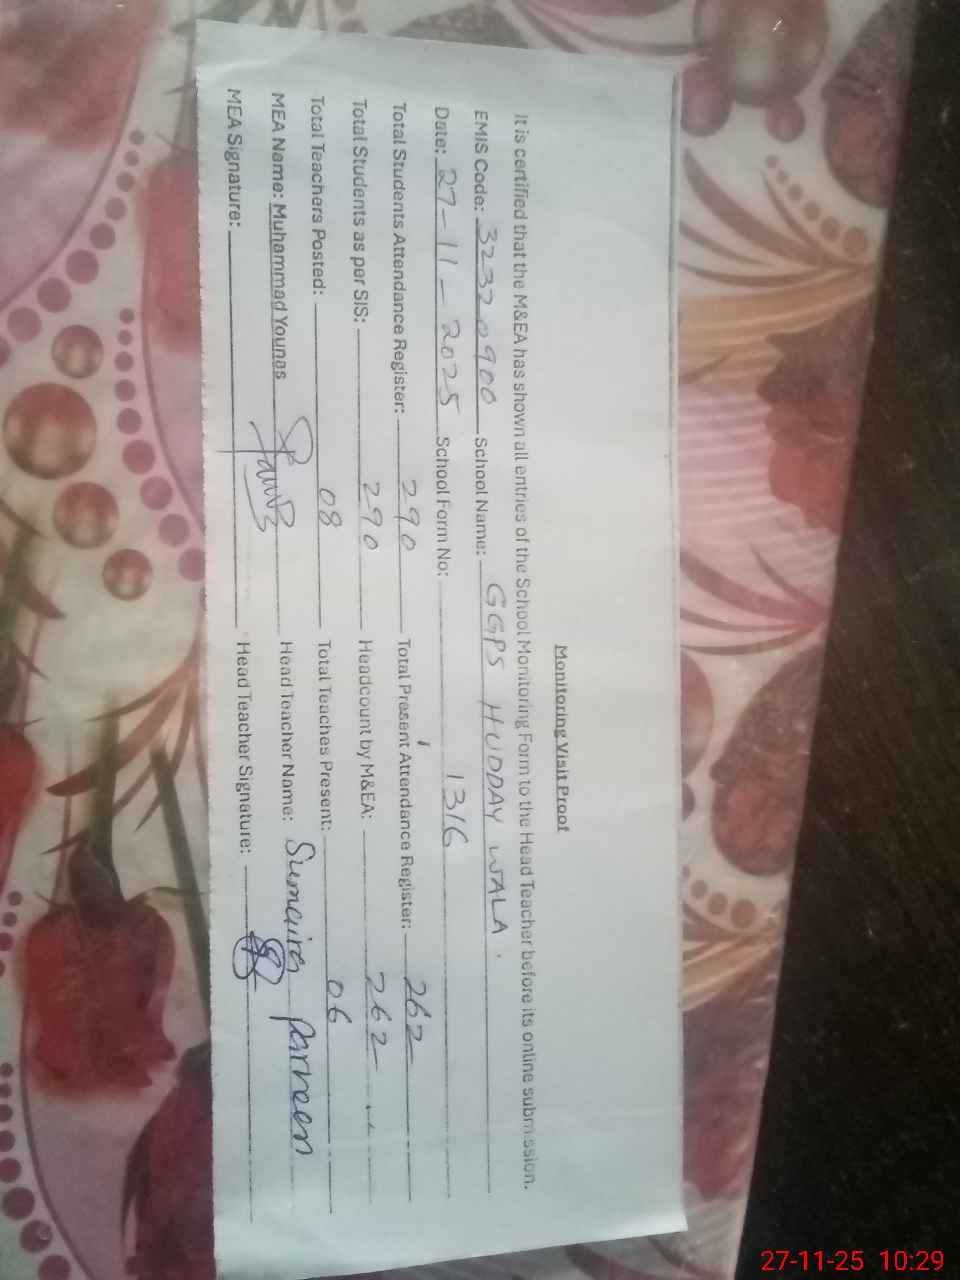 Monitoring Visit Proof
It is certified that the M&EA has shown all entries of the School Monitoring Form to the Head Teacher before its online submission.
EMIS Code: 32320900 School Name: GGPS HUDDAY WALA.
Date: 27-11-2025 School Form No: 1316
Total Students Attendance Register: 290 Total Present Attendance Register: 262
Total Students as per SIS: 290 Headcount by M&EA: 262
Total Teachers Posted: 08 Total Teaches Present: 06
MEA Name: Muhammad Younas Head Teacher Name: Sumaira Parveen
MEA Signature: Head Teacher Signature:
27-11-25 10:29